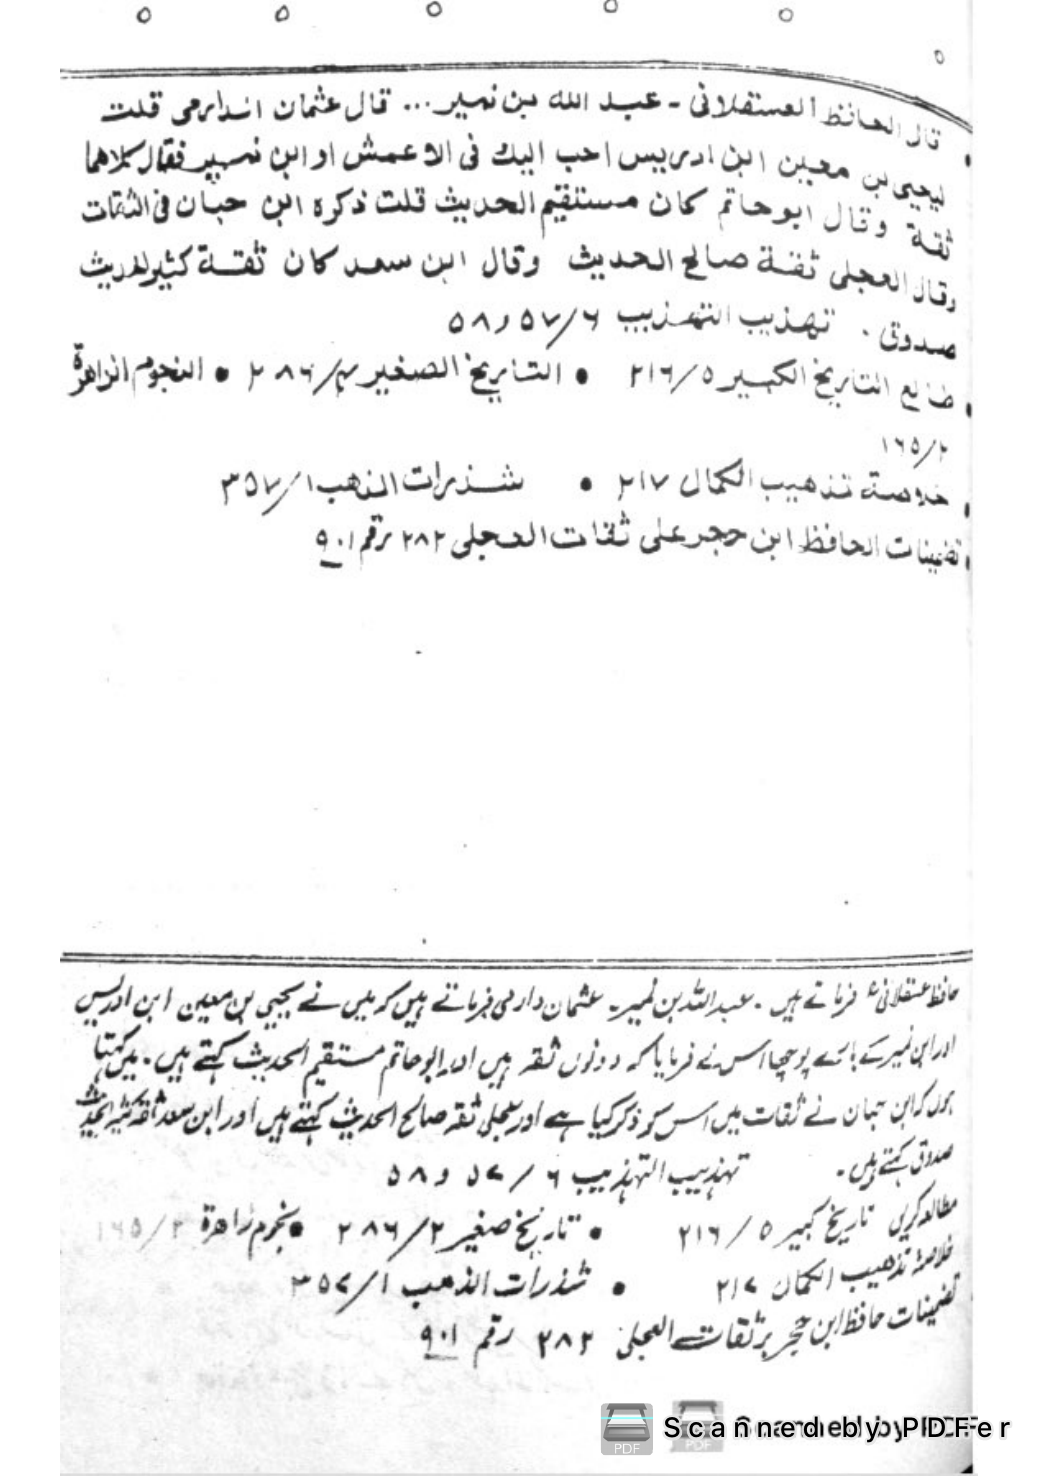 قال الحافظ العسقلانی - عبد الله بن نمیر ... قال عثمان الدارمی قلت
لیحیی بن معین ابن ادریس احب الیك فی الاعمش او ابن نمیر فقال کلاهما
ثقة وقال ابوحاتم کان مستقیم الحدیث قلت ذکره ابن حبان فی الثقات
وقال العجلی ثقة صالح الحدیث وقال ابن سعد کان ثقة کثیر الحدیث
صدوق . تهذیب التهذیب ۶/۵۷ و ۵۸
• طالع التاریخ الکبیر ۵/۲۱۶ • التاریخ الصغیر ۲/۲۸۶ • النجوم الزاهرة
۲/۱۶۵
• خلاصة تذهیب الکمال ۲۱۷ • شذرات الذهب ۱/۳۵۷
• تضمینات الحافظ ابن حجر علی ثقات العجلی ۲۸۲ رقم ۹۰۱
حافظ عسقلانیؒ فرماتے ہیں ۔ عبداللہ بن نمیر ۔ عثمان دارمی فرماتے ہیں کہ میں نے یحیی بن معین ابن ادریس
اور ابن نمیر کے بارے پوچھا اس نے فرمایا کہ دونوں ثقہ ہیں اور ابوحاتم مستقیم الحدیث کہتے ہیں ۔ میں کہتا
ہوں کہ ابن حبان نے ثقات میں اس کو ذکر کیا ہے اور عجلی ثقہ صالح الحدیث کہتے ہیں اور ابن سعد ثقہ کثیر الحدیث
صدوق کہتے ہیں ۔ تہذیب التہذیب ۶ / ۵۷ و ۵۸
مطالعہ کریں تاریخ کبیر ۵ / ۲۱۶ • تاریخ صغیر ۲/۲۸۶ • نجوم زاهرة ۲/۱۶۵
خلاصۃ تذهیب الکمال ۲۱۷ • شذرات الذهب ۱/۳۵۷
تضمینات حافظ ابن حجر بر ثقات العجلی ۲۸۲ رقم ۹۰۱
Scanned by PDFer